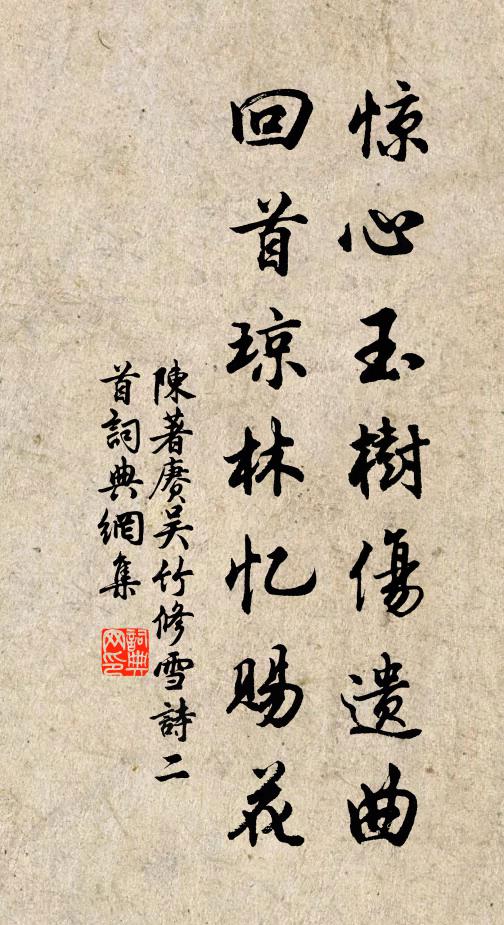 惊心玉樹傷遺曲
回首琼林忆賜花
陳著賡吴竹修雪詩二
首詞典網集
詞典网印